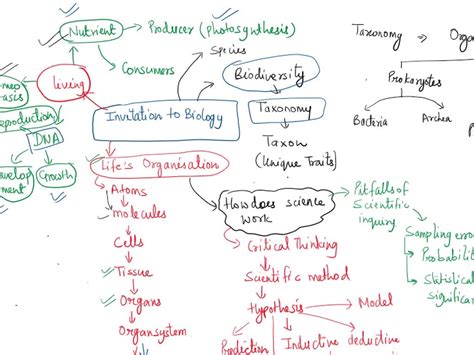 Nutrient
Producer (photosynthesis)
Consumers
Species
Taxonomy
Living
Biodiversity
Prokaryotes
Bacteria
Archea
Invitation to Biology
Taxonomy
Taxon
(Unique Traits)
DNA
Growth
Life's Organisation
Atoms
molecules
Cells
Tissue
Organs
Organsystem
How does science
work
Critical Thinking
Scientific method
Hypothesis
Model
Prediction
Inductive deductive
Pitfalls of
Scientific
inquiry
Sampling error
Statistical